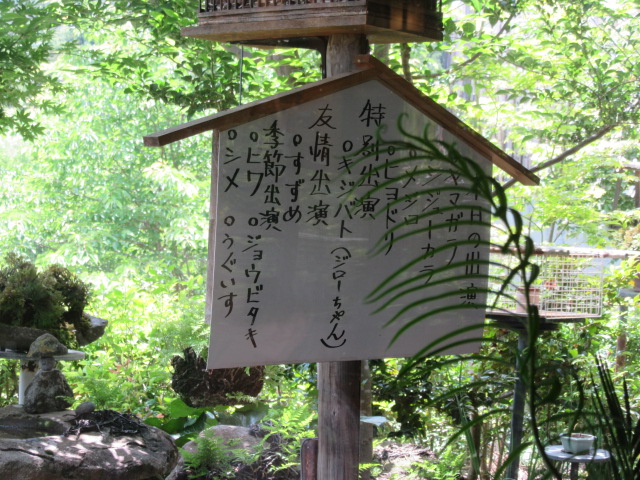 日の出演
ヤマガラ
シジューカラ
○メジロ
特別出演
○ヒヨドリ
○キジバト（ジローちゃん）
友情出演
○すずめ
季節出演
○ヒワ ○ジョウビタキ
○シメ ○うぐいす